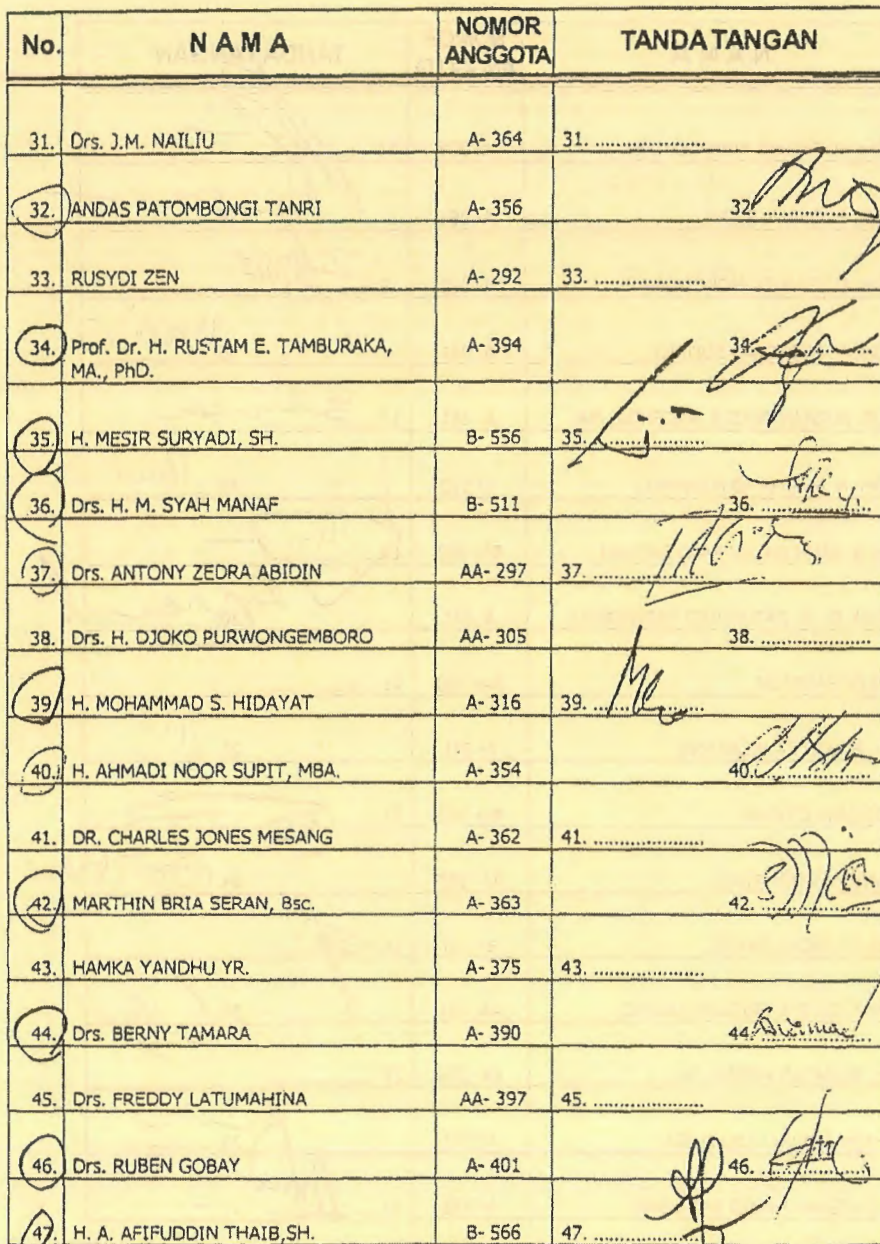 No. NAMA NOMOR ANGGOTA TANDA TANGAN
31. Drs. J.M. NAILIU A- 364 31. ....................
32. ANDAS PATOMBONGI TANRI A- 356 32. ....................
33. RUSYDI ZEN A- 292 33. ....................
34. Prof. Dr. H. RUSTAM E. TAMBURAKA, A- 394 34. ....................
MA., PhD.
35. H. MESIR SURYADI, SH. B- 556 35. ....................
36. Drs. H. M. SYAH MANAF B- 511 36. ....................
37. Drs. ANTONY ZEDRA ABIDIN AA- 297 37. ....................
38. Drs. H. DJOKO PURWONGEMBORO AA- 305 38. ....................
39. H. MOHAMMAD S. HIDAYAT A- 316 39. ....................
40. H. AHMADI NOOR SUPIT, MBA. A- 354 40. ....................
41. DR. CHARLES JONES MESANG A- 362 41. ....................
42. MARTHIN BRIA SERAN, Bsc. A- 363 42. ....................
43. HAMKA YANDHU YR. A- 375 43. ....................
44. Drs. BERNY TAMARA A- 390 44. ....................
45. Drs. FREDDY LATUMAHINA AA- 397 45. ....................
46. Drs. RUBEN GOBAY A- 401 46. ....................
47. H. A. AFIFUDDIN THAIB,SH. B- 566 47. ....................